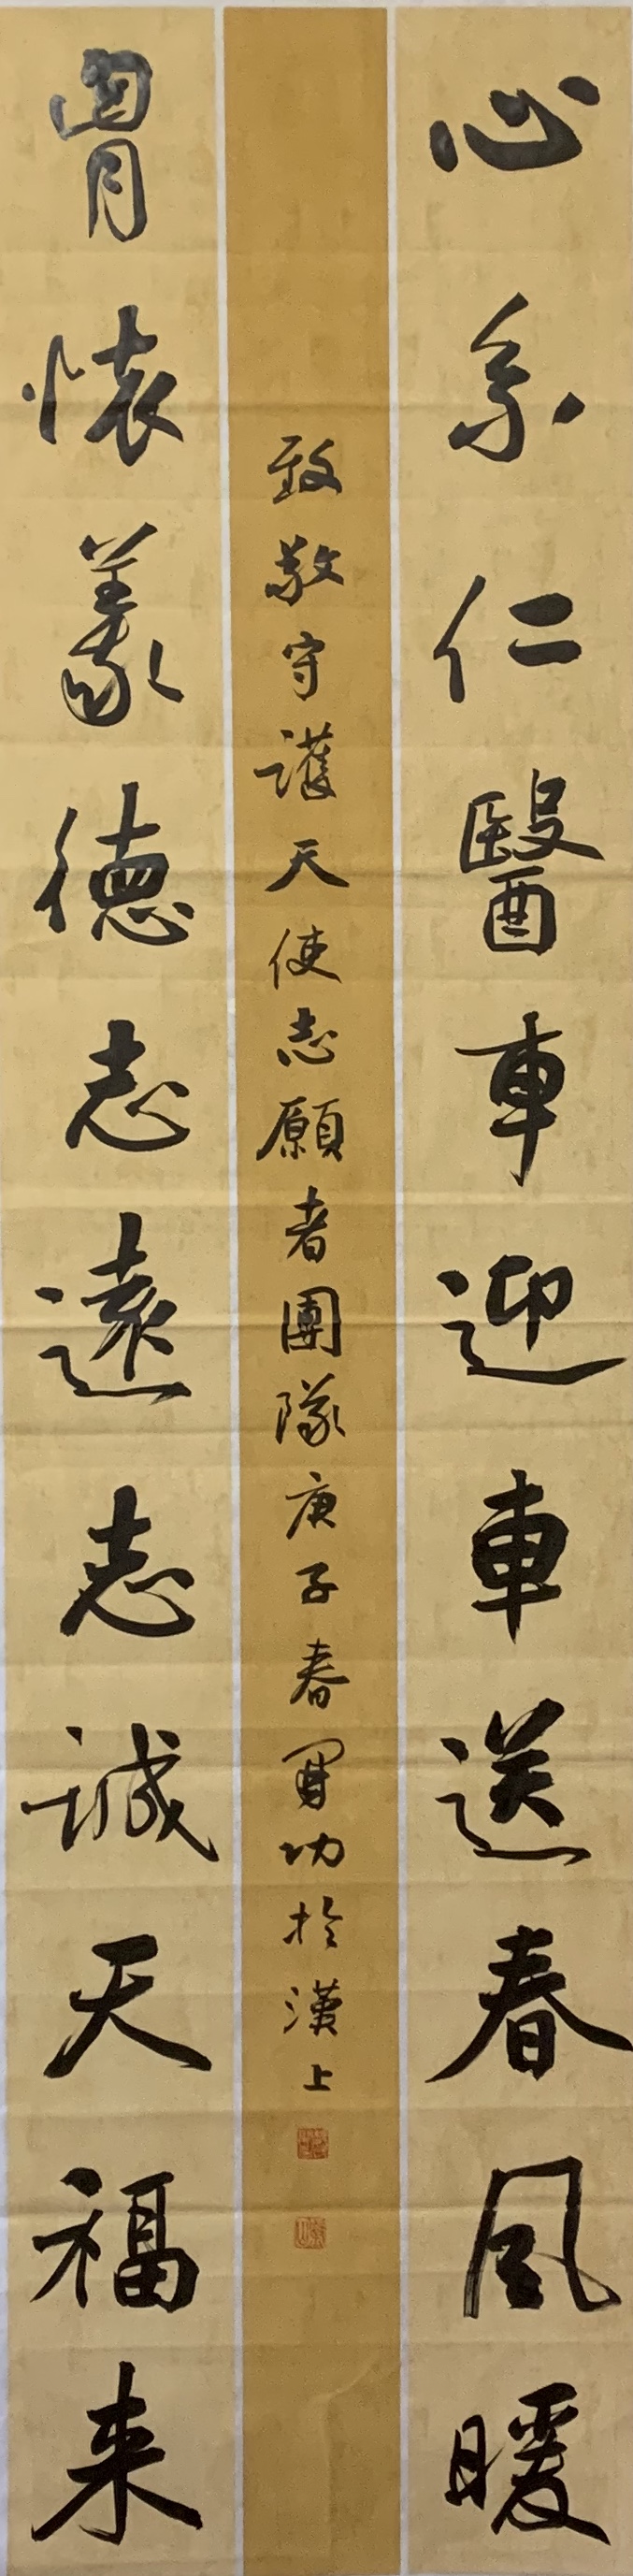 心系仁醫車迎車送春風暖
致敬守護天使志願者團隊庚子春功於漢上
胷懷義德志遠志誠天福来